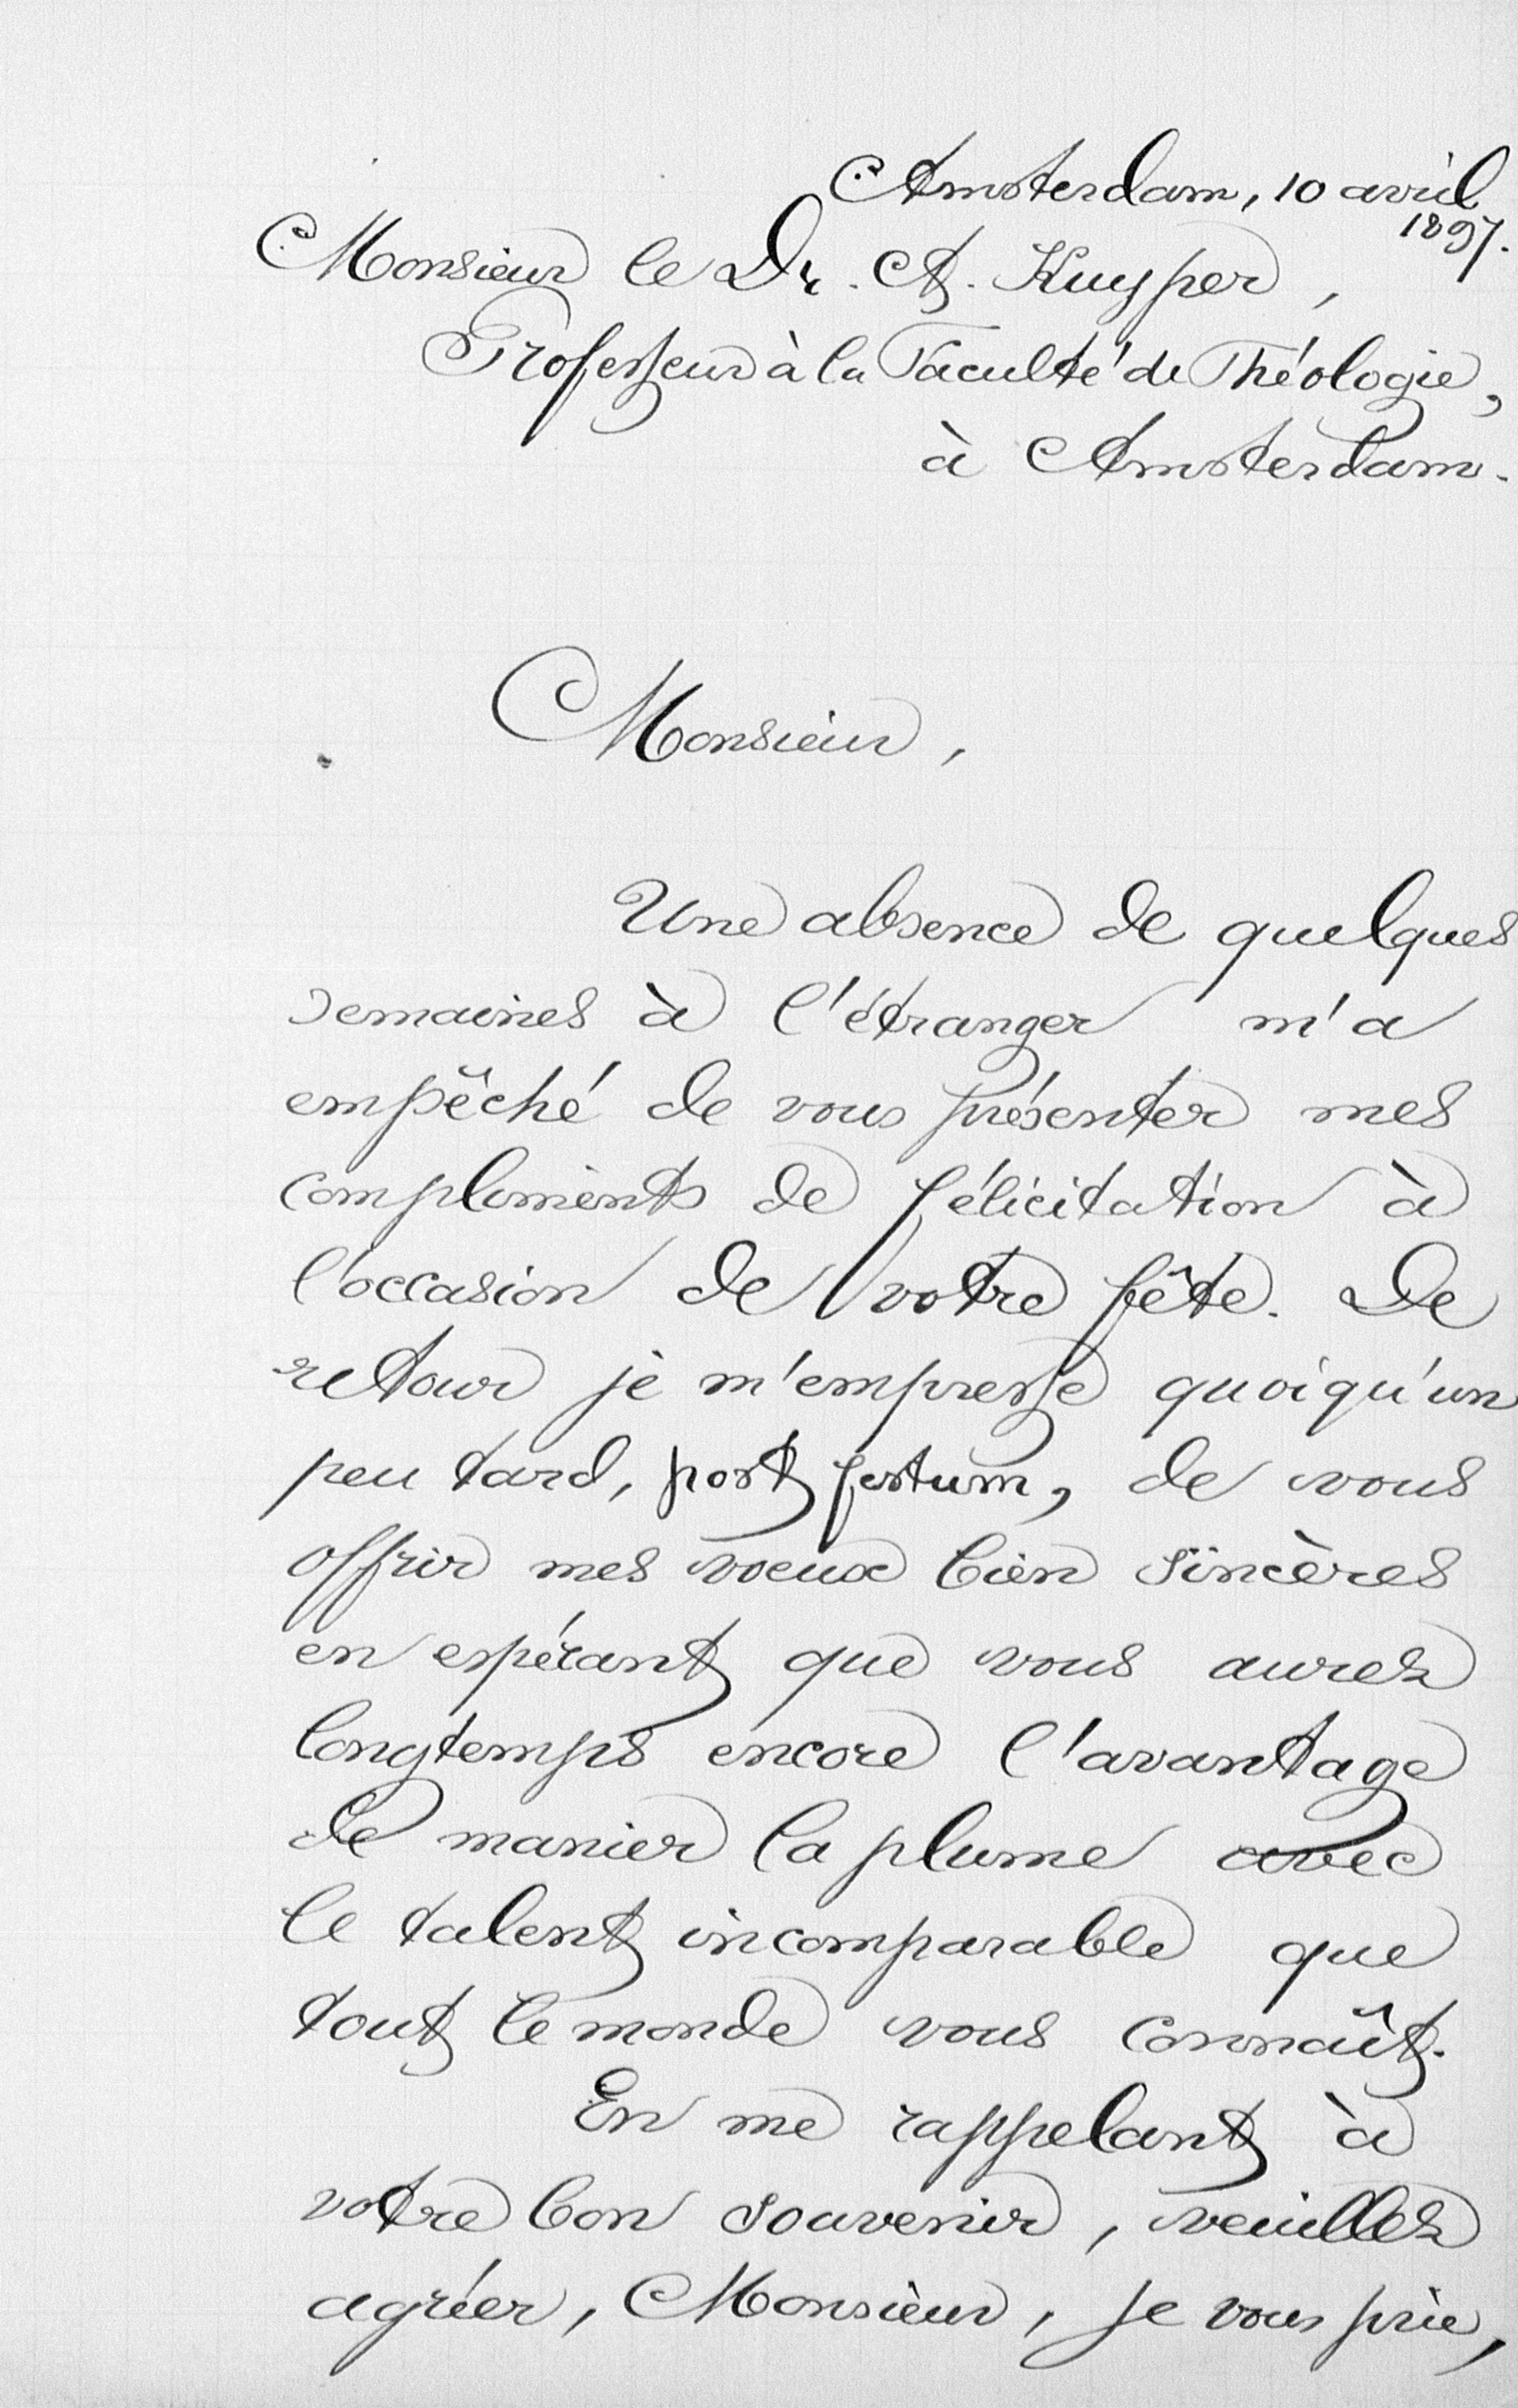 Amsterdam, 10 avril
1897.
Monsieur le Dr. A. Kuyper,
Professeur à la Faculté de Théologie,
à Amsterdam.
Monsieur,
Une absence de quelques
semaines à l'étranger m'a
empêché de vous présenter mes
compliments de félicitation à
l'occasion de votre fête. De
retour je m'empresse quoiqu'un
peu tard, post festum, de vous
offrir mes voeux bien sincères
en espérant que vous aurez
longtemps encore l'avantage
de manier la plume avec
le talent incomparable que
tout le monde vous connaît.
En me rappelant à
votre bon souvenir, veuillez
agréer, Monsieur, je vous prie,